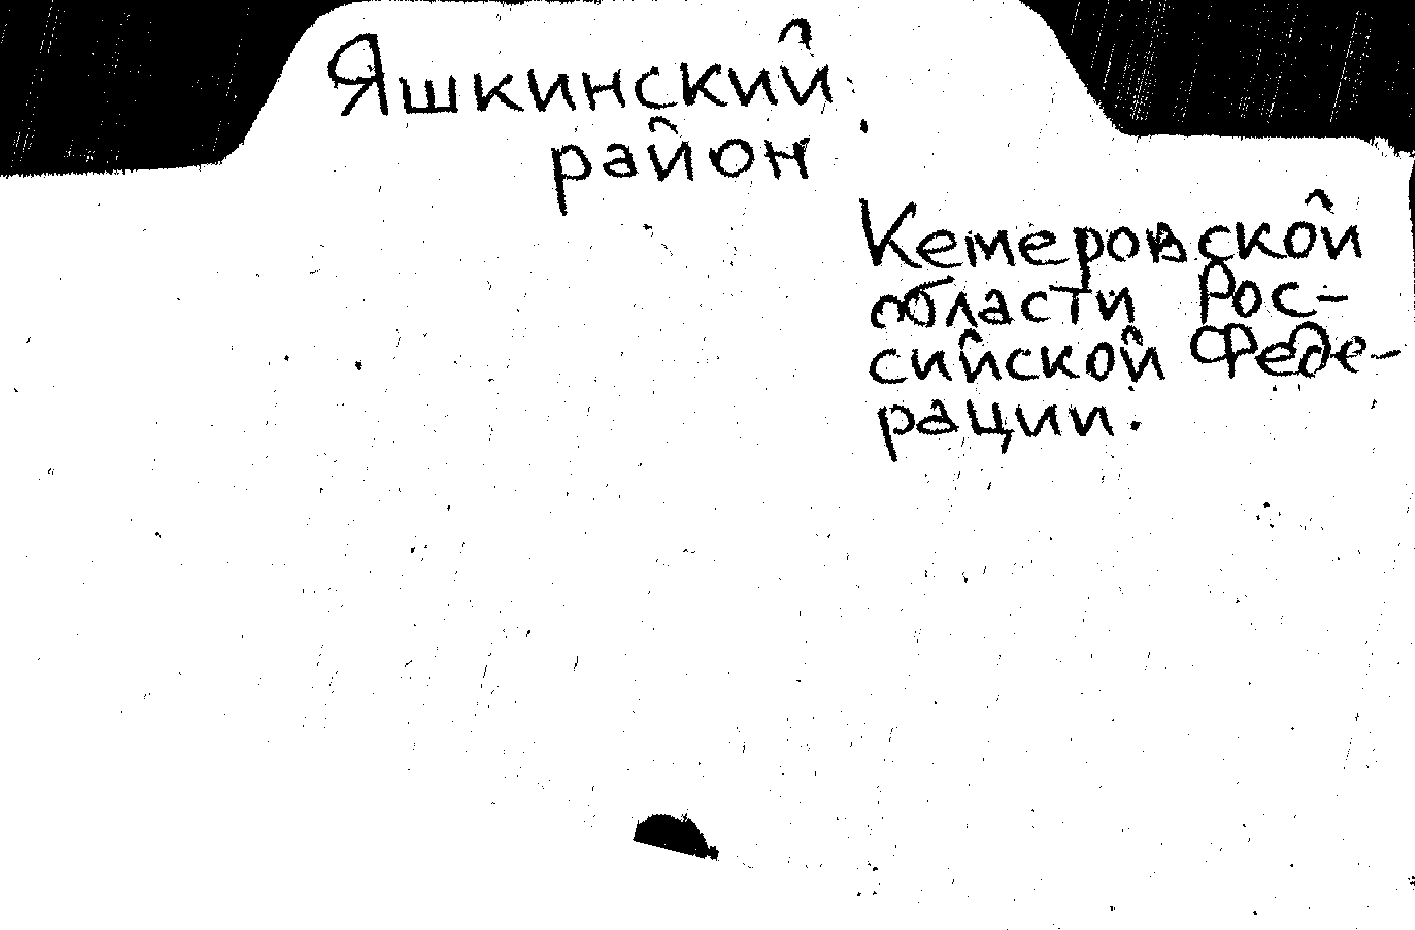 Яшкинский
район
Кемеровской
области Рос-
сийской Феде-
рации.